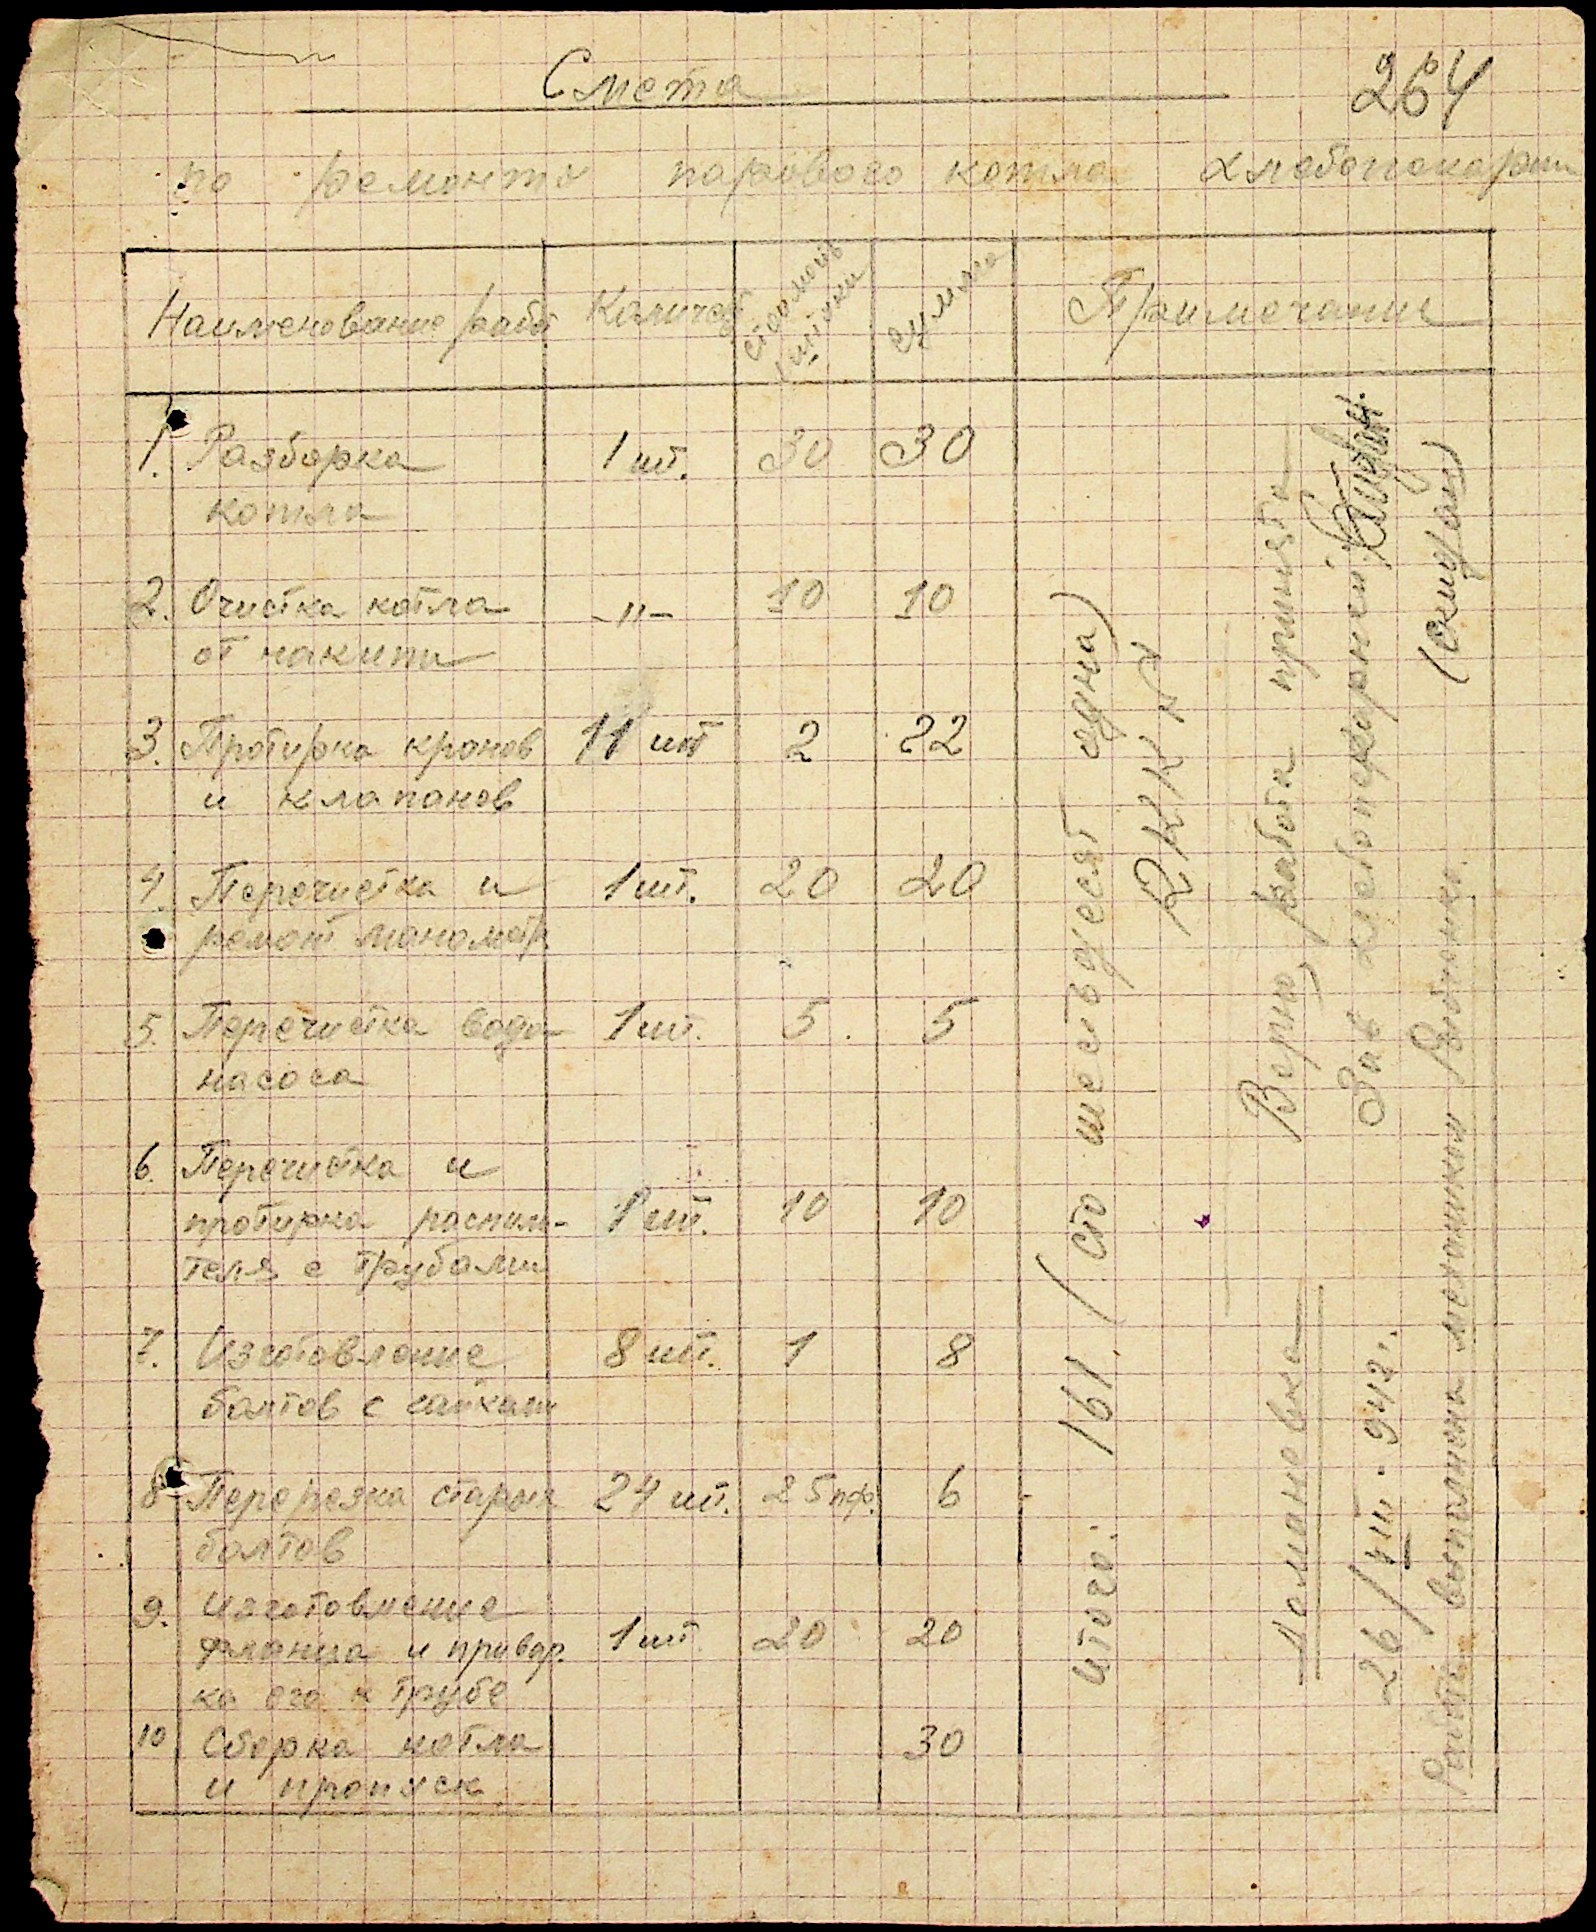 Смета
264
по ремонту парового котла хлебопекарни
Наименование работ
Количеств
стоимость
1 штуки
сумма
Примечание
1. Разборка 1 шт. 30 30
котла
2. Очистка котла -"- 10 10
от накипи
3. Протирка кранов 11 шт 2 22
и клапанов
4. Перечистка и 1 шт. 20 20
ремонт манометр
5. Перечистка водо- 1 шт. 5 5
насоса
6. Перечистка и
протирка распыли- 1 шт. 10 10
теля с трубами
7. Изготовление 8 шт. 1 8
болтов с гайками
8 Перерезка старых 24 шт. 25 пф. 6
болтов
9. Изготовление
фланца и привар. 1 шт. 20 20
ка его к трубе
10 Сборка котла 30
и пропуск
Итого: 161 / (сто шестьдесят одна)
РККМ
Верно, работа принята
Зав хлебопекарней
Домановка
26/VIII. 942 г.
Работа выполнена механиком